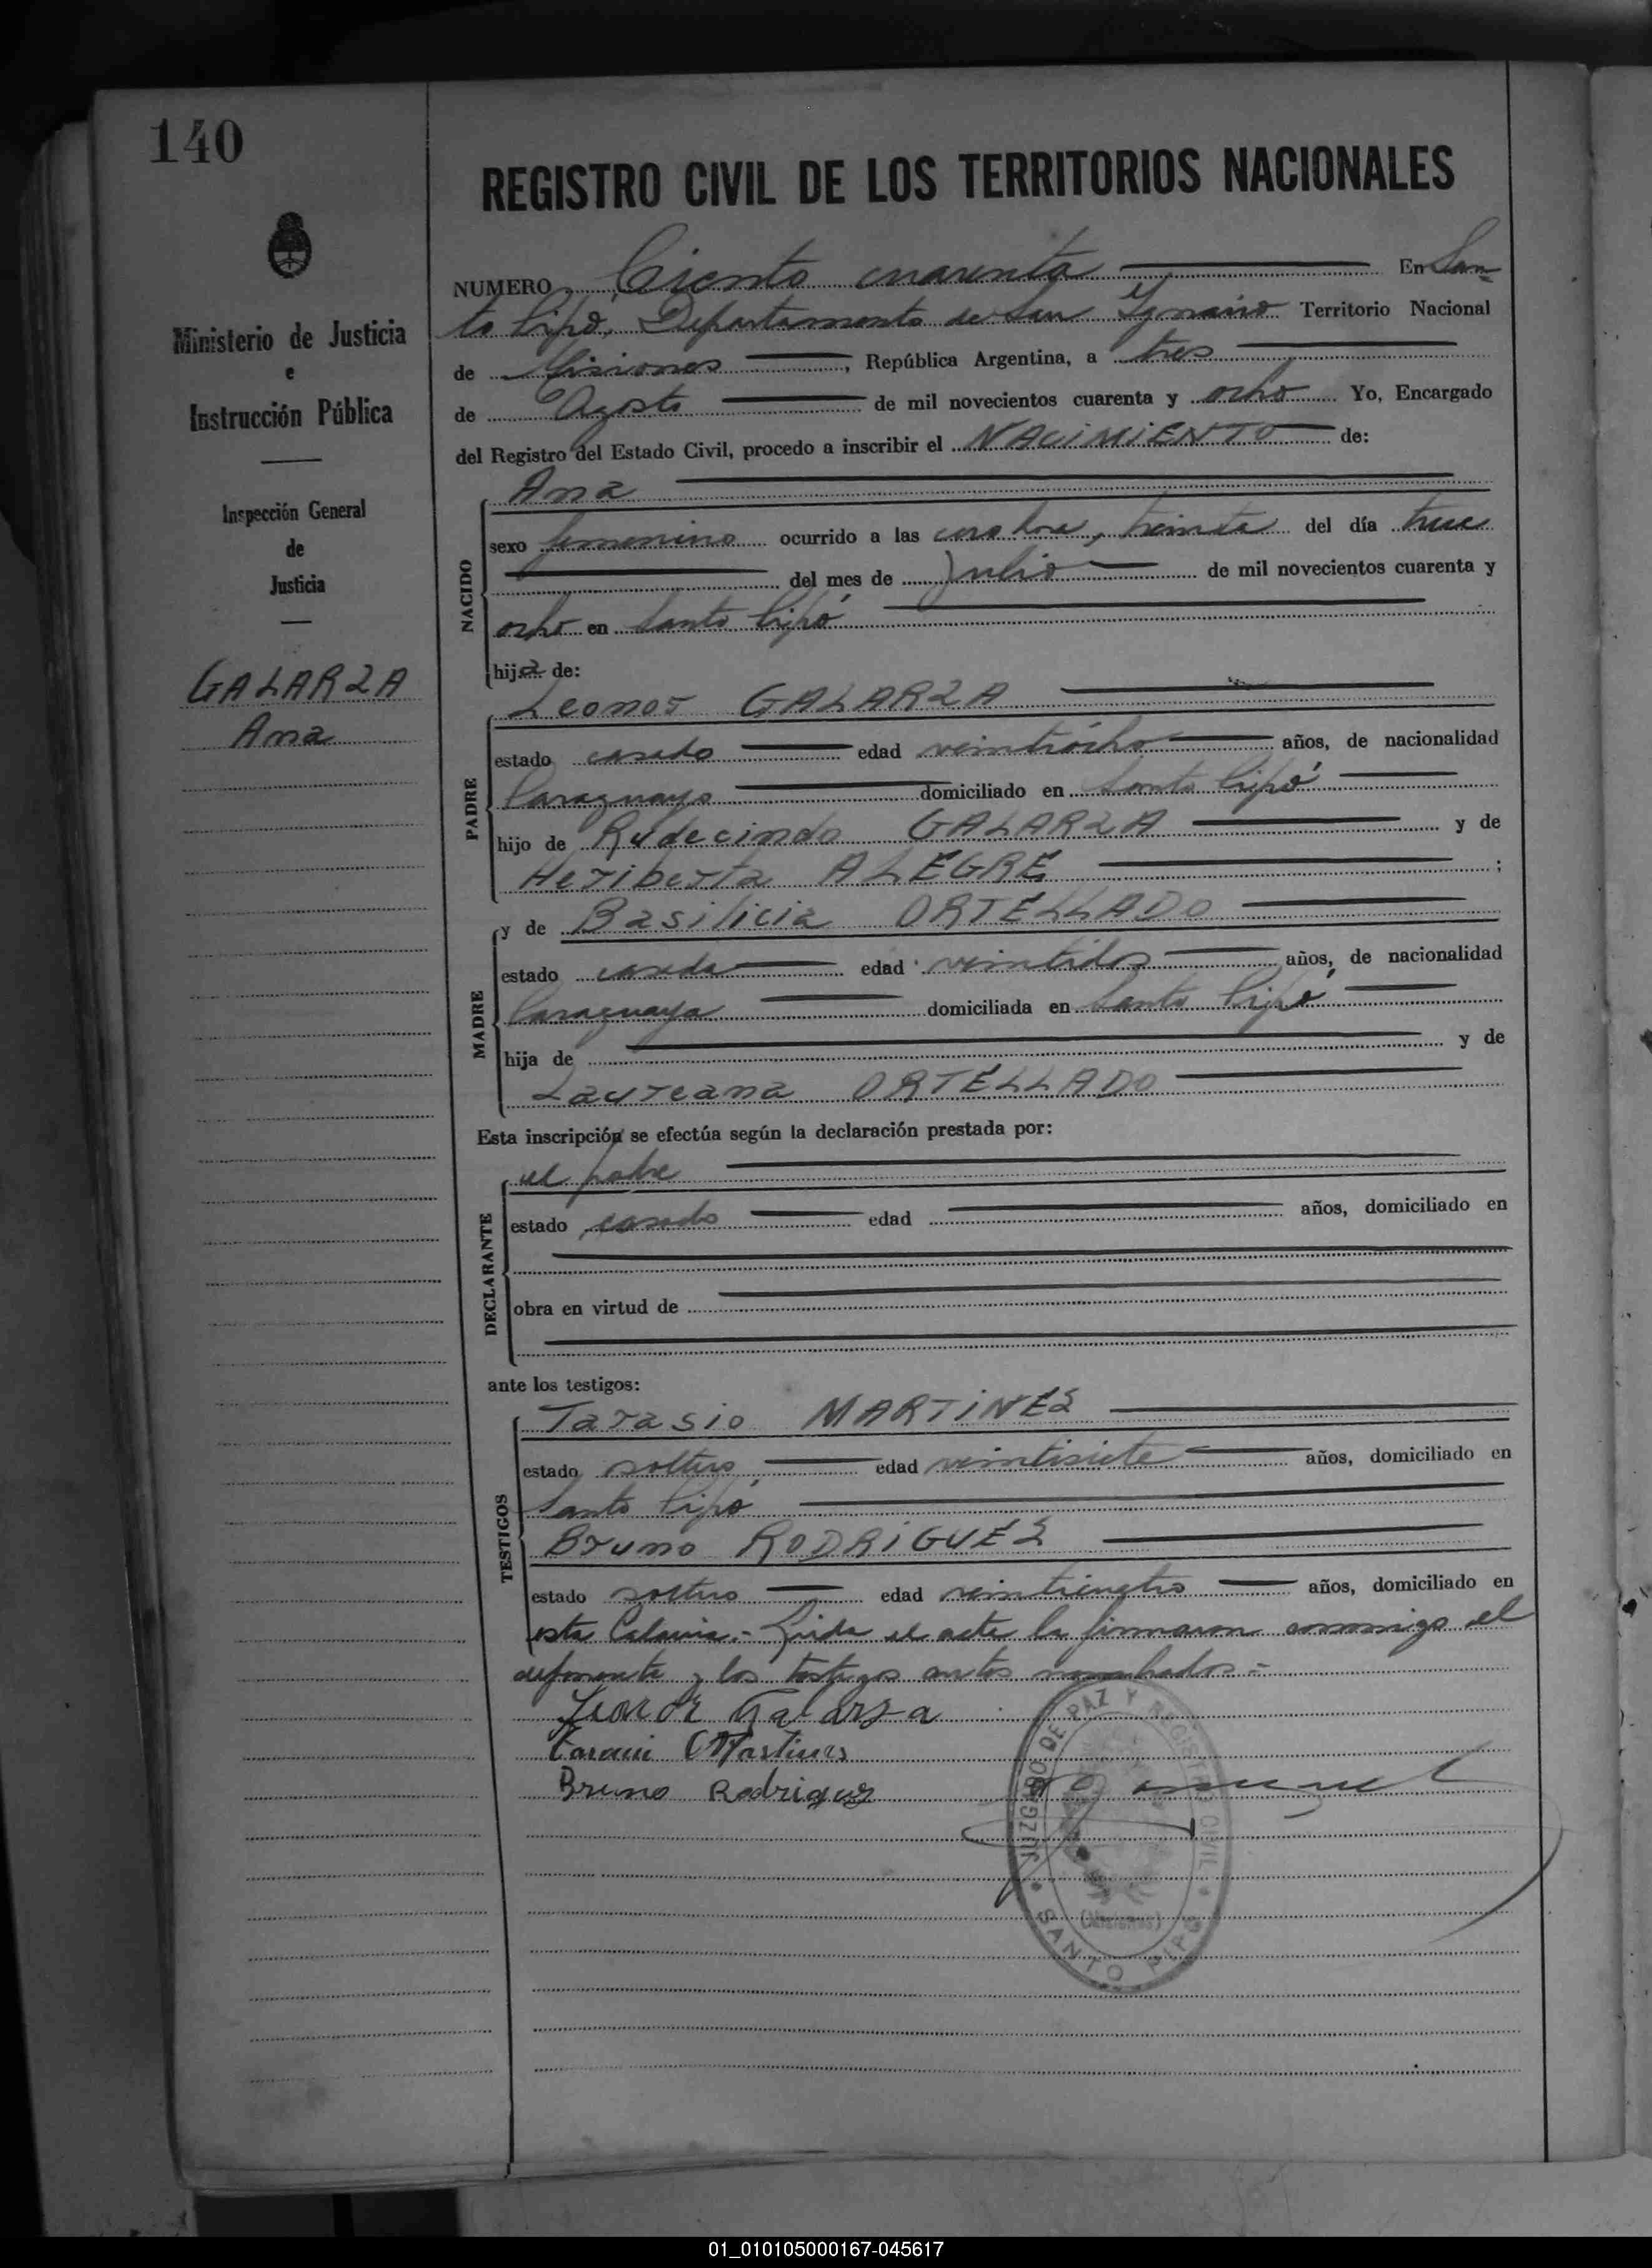 140
REGISTRO CIVIL DE LOS TERRITORIOS NACIONALES
Ministerio de Justicia
e
Instrucción Pública
Inspección General
de
Justicia
GALARZA
Ana
NUMERO Ciento cuarenta En San-
to Pipó, Departamento de San Ygnacio Territorio Nacional
de Misiones, República Argentina, a tres
de Agosto de mil novecientos cuarenta y ocho Yo, Encargado
del Registro del Estado Civil, procedo a inscribir el NACIMIENTO de:
NACIDO
Ana
sexo femenino ocurrido a las cero hora, treinta del día trece
del mes de Julio de mil novecientos cuarenta y
ocho en Santo Pipó
hija de:
PADRE
Leonor GALARZA
estado casado edad veintiocho años, de nacionalidad
Paraguayo domiciliado en Santo Pipó
hijo de Rudecindo GALARZA y de
Heriberta ALEGRE ;
MADRE
y de Basilicia ORTELLADO
estado casada edad veintidos años, de nacionalidad
Paraguaya domiciliada en Santo Pipó
hija de y de
Laureana ORTELLADO
Esta inscripción se efectúa según la declaración prestada por:
DECLARANTE
el padre
estado casado edad años, domiciliado en
obra en virtud de
ante los testigos:
TESTIGOS
Tarasio MARTINEZ
estado soltero, edad veintisiete años, domiciliado en
Santo Pipó
Bruno RODRIGUEZ
estado soltero edad veinticuatro años, domiciliado en
esta Colonia.- Leida el acta la firmaron conmigo el
deponente y los testigos antes nombrados.-
Leonor Galarza
Martines
Bruno Rodriguez
JUZGADO DE PAZ Y REGISTRO CIVIL
(Misiones)
SANTO PIPO
01_010105000167-045617